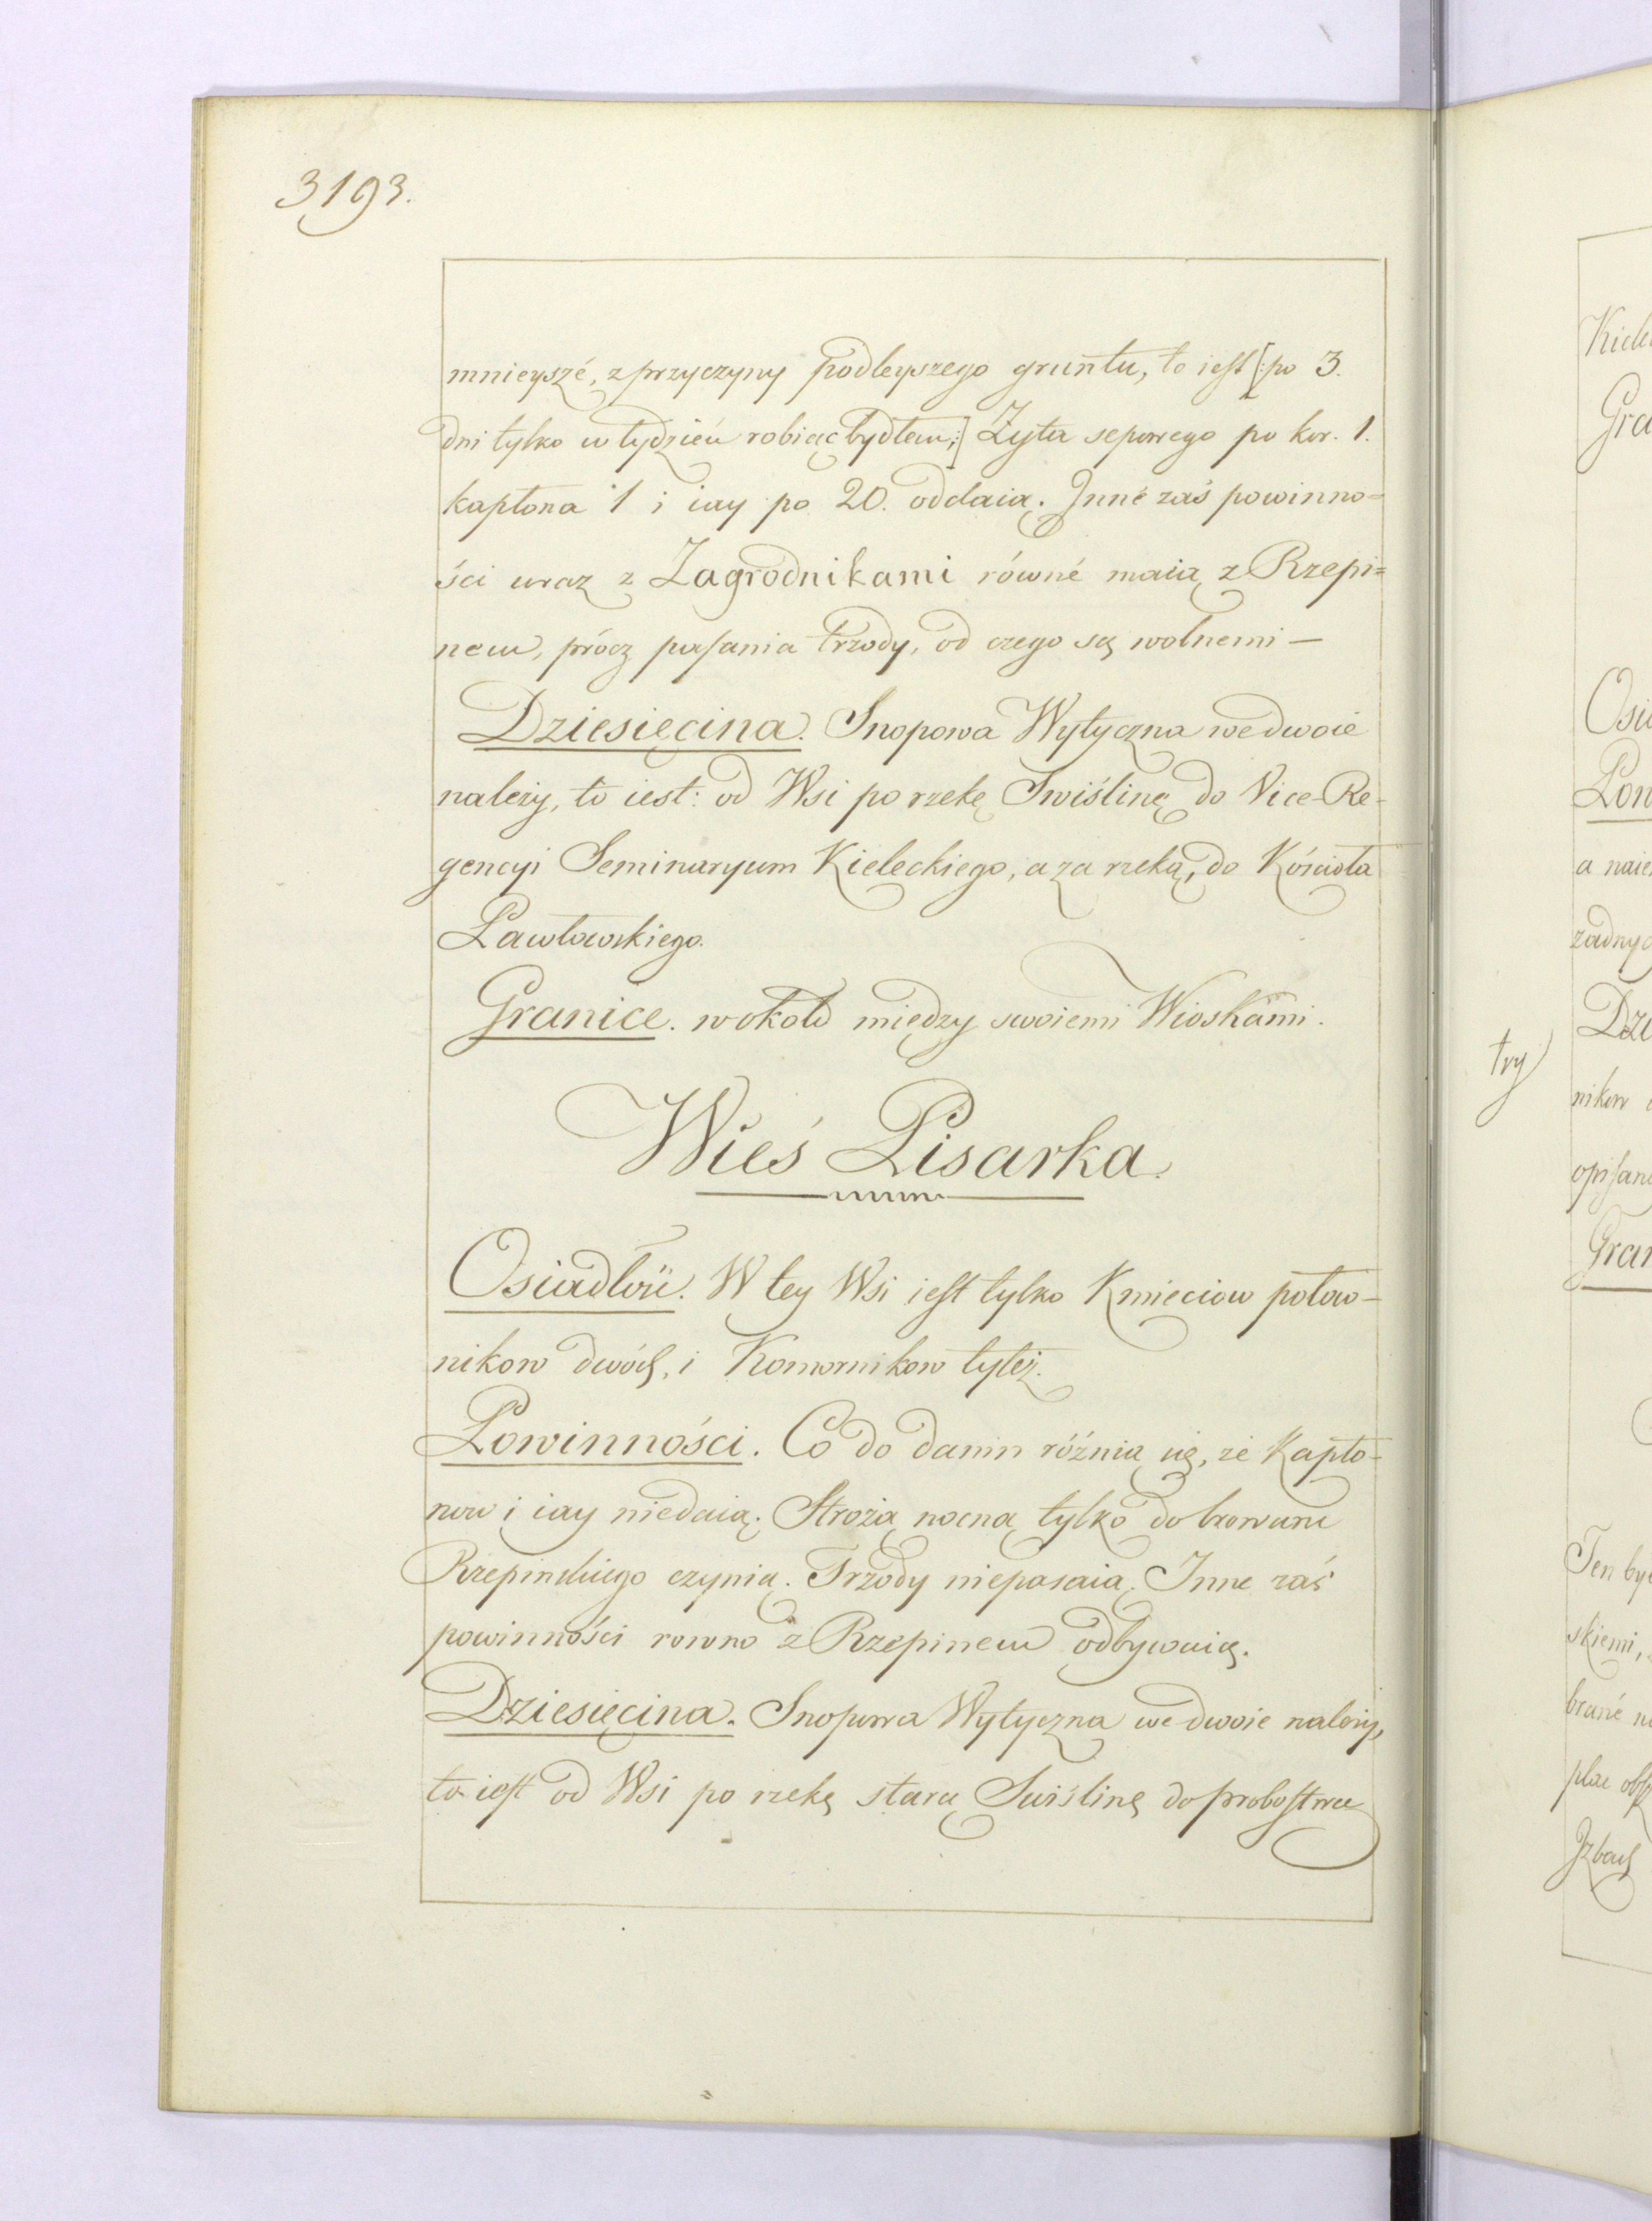 3193.
mnieyszé, z przyczyny podleyszego gruntu, to iest [: po 3.
dni tylko w tydzień robiąc bydłem; :] Żyta sepowego po kor. 1.
kapłona 1 i iay po 20. oddaią. Inné zaś powinno=
ści wraz z Zagrodnikami równé maią z Rzepi=
nem, prócz pasania trzody, od czego są wolnemi —
Dziesięcina. Snopowa Wytyczna wedwoie
należy, to iest: od Wsi po rzekę Swiślinę do Vice-Re-
gencyi Seminaryum Kieleckiego, a za rzeką, do Kościoła
Pawłowskiego.
Granice. wokoło między swoiemi Wioskami.
Wieś Pisarka.
Osiadłość. W tey Wsi iest tylko Kmieciow połow-
nikow dwóch, i Komornikow tyleż.
Powinności. Co do danin różnią się, że Kapło-
now i iay niedaią. Strożą nocną tylko do browaru
Rzepinskiego czynią. Trzody niepasaią. Inne zaś
powinności rowno z Rzepinem odbywaią.
Dziesięcina. Snopowa Wytyczna we dwoie należy,
to iest od Wsi po rzekę starą Swiślinę do probostwa
try
Kiele
Gra
Osia
Pow
a naie
żadnyc
Dzie
nikow
opisan
Gran
Ten by
skiemi,
brané
plac
Izbach